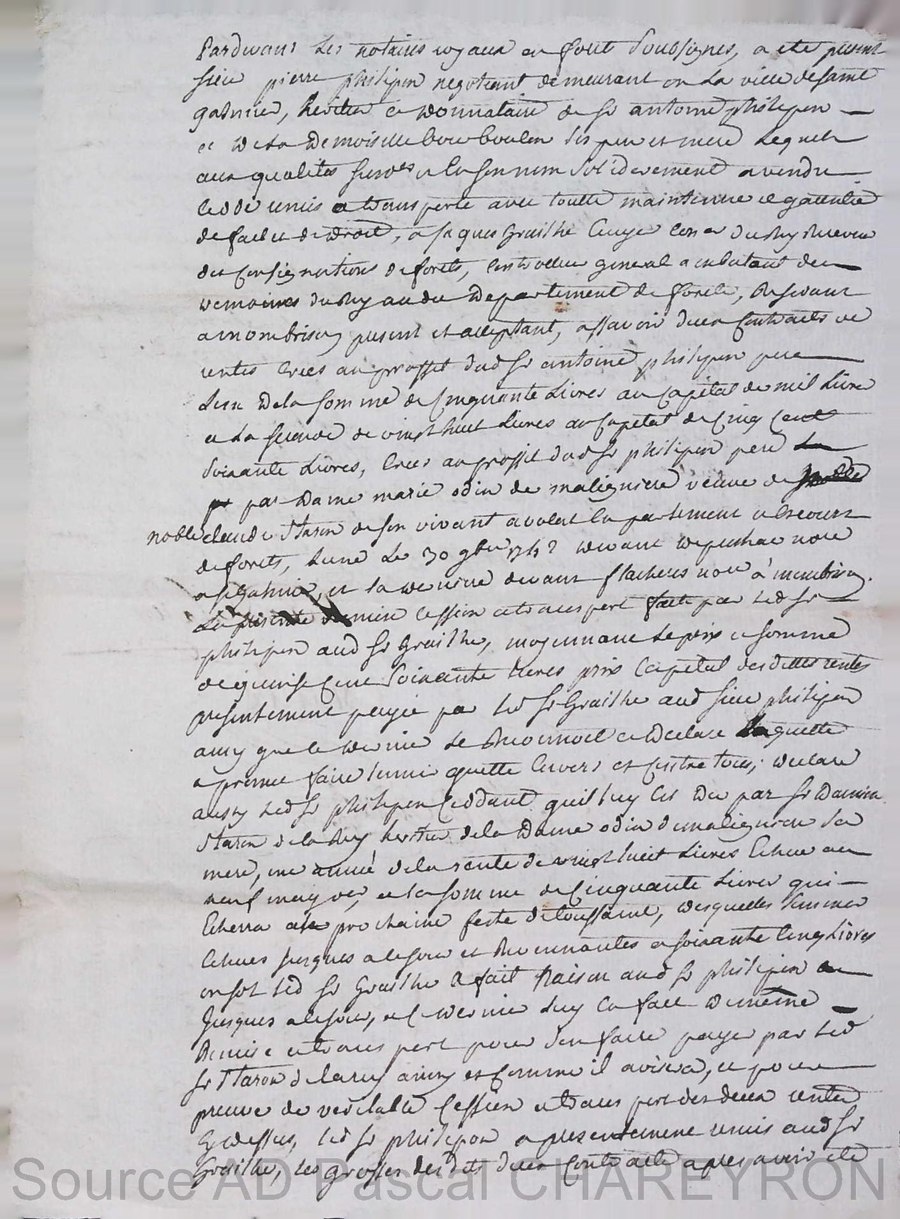 Pardevant Les notaires royaux en forêt Soubsignes, a eté present
sieur pierre philipon negotiant demeurant en La ville de saint
galmier, heritier et donnataire de Sr antoine philipon
et de La Demoiselle boulon ses pere et mere Lequel
aux qualités susd es et en son nom solidairement a vendu
cedé remis et transporté avec toutte maintenue et garentie
de fait et de droit, a jaques Grailhe Ecuyer Coner du Roy Receveur
des Consignations de forêts, Controlleur general ambulant des
domaines du Roy au du Departement de forêts, Residant
a montbrison present et acceptant, assavoir deux Contracts de
rentes Crées au proffit dud Sr antoine philipon pere
Lun De la somme de Cinquante Livres au Capital de mil Livre
et La seconde de vingt huit Livres au Capital de Cinq Cents
Soixante Livres, Crées au proffit dud Sr philipon pere
par Dame marie odin de malignieu veuve de
noble claude Staron de son vivant avocat En parlement et es cours
de forêts, Lune Le 30 9bre 1742 devant depeschac nore
a St Galmier, et La derniere devant flacheres nore à montbrison.
La presente cession et transport faite par Led Sr
philipon aud Sr Grailhe, moyennant Le prix et somme
de quinze Cent Soixante Livres prix Capital desdittes rentes
presentement payée par Led Sr Grailhe aud sieur philipon
ainsy que ce dernier Le Reconnoit et Declare Laquelle
a promis faire tenir quitte Envers et Contre tous; declare
aussy Led Sr philipon Ceddant quil luy est Du par Sr Damien
Staron de la Rey heritier de la Dame odin de malignieu sa
mere, une année de la rente de vingt huit Livres Echue au
neuf may der, et la somme de Cinquante Livres qui
Echerra a la prochaine feste de toussaint, desquelles sommes
Echues jusques a ce jour et Revenantes a soixante Cinq Livres
Led Sr Grailhe a fait Raison aud Sr philipon
jusques a ce jour, et ce dernier Luy En fait de même
Remise et transport pour s'en faire payer par Led
Sr Staron de larey ainsy et Comme il avisera, et pour
preuve de veritable Cession et transport des deux rentes
Cy dessus, Led Sr philipon a presentement remis aud Sr
Grailhe, Les grosses desdts deux Contracts apres avoir eté
Source AD Pascal CHAREYRON